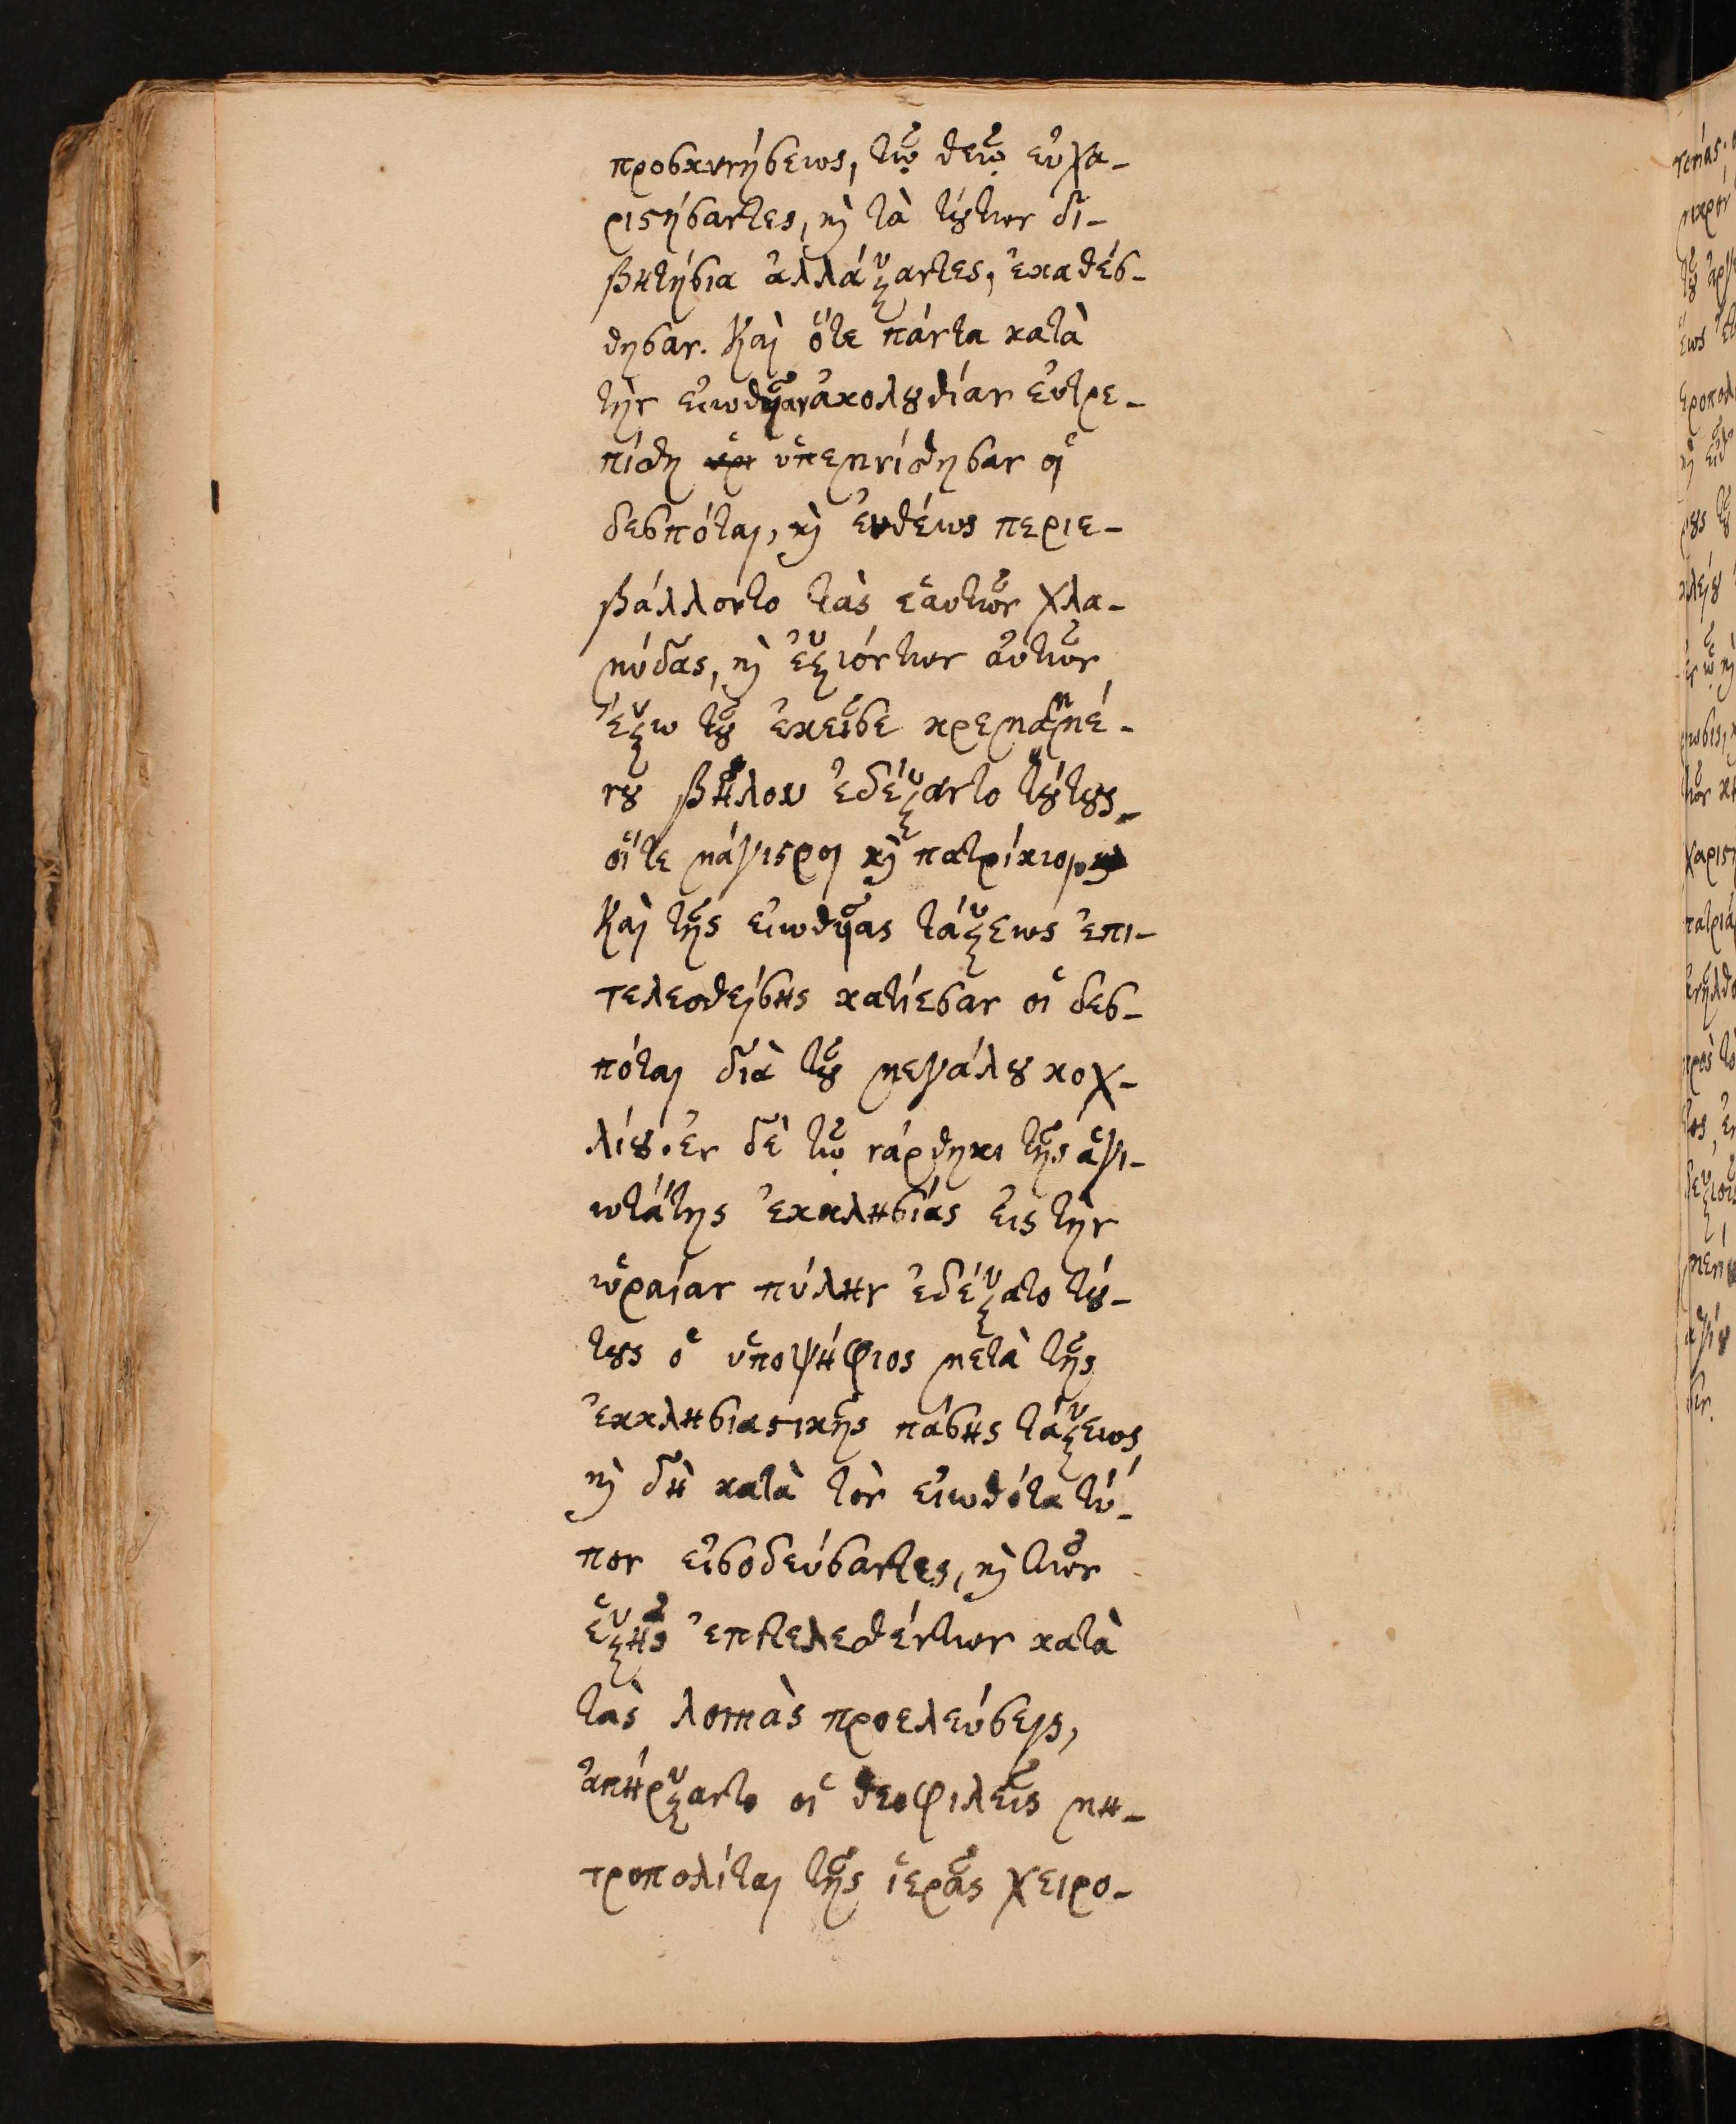 προσκυνήσεως, τῷ θεῷ εὐχα-
ριστήσαντες, καὶ τὰ τούτων δι-
βητήσια ἀλλάξαντες, ἐκαθέσ-
θησαν. Καὶ ὅτε πάντα κατὰ
τὴν εἰωθυῖαν ἀκολουθίαν εὐτρε-
πίσθη ὑπεμνίσθησαν οἱ
δεσπόται, καὶ εὐθέως περιε-
βάλλοντο τὰς ἑαυτῶν χλα-
μύδας, καὶ ἐξιόντων αὐτῶν
ἔξω τοῦ ἐκεῖσε κρεμαμμέ-
νου βήλου ἐδέξαντο τούτους
οἵτε μάγιστροι καὶ πατρίκιοι
Καὶ τῆς εἰωθυίας τάξεως ἐπι-
τελεσθείσης κατίεσαν οἱ δεσ-
πόται διὰ τοῦ μεγάλου κοχ-
λίου. ἐν δὲ τῷ νάρθηκι τῆς ἁγι-
ωτάτης ἐκκλησίας εἰς τὴν
ὡραίαν πύλην ἐδέξατο τού-
τους ὁ ὑποψήφιος μετὰ τῆς
ἐκκλησιαστικῆς πάσης τάξεως
καὶ δὴ κατὰ τὸν εἰωθότα τύ-
πον εἰσοδεύσαντες, καὶ τῶν
ἑξῆς ἐπιτελεσθέντων κατὰ
τὰς λοιπὰς προελεύσεις,
ἀπήρξαντο οἱ θεοφιλεῖς μη-
τροπολίται τῆς ἱερᾶς χειρο-